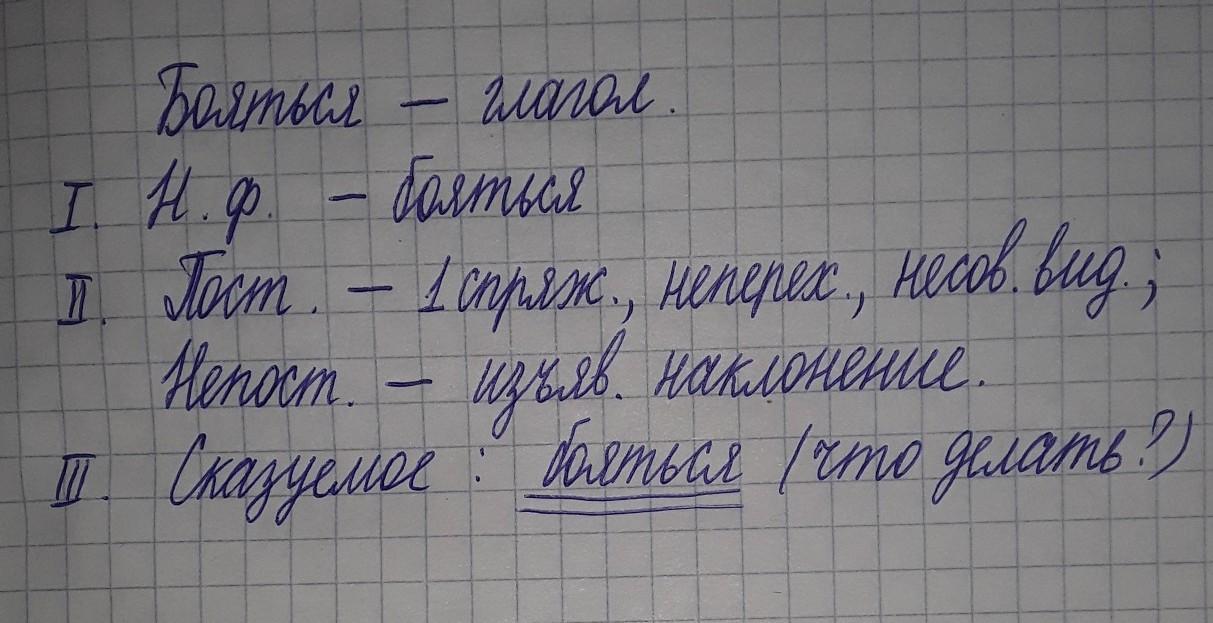 Бояться — глагол.
I. Н. ф. — бояться
II. Пост. — 1 спряж., неперех., несов. вид.;
Непост. — изъяв. наклонение.
III. Сказуемое : бояться (что делать?)